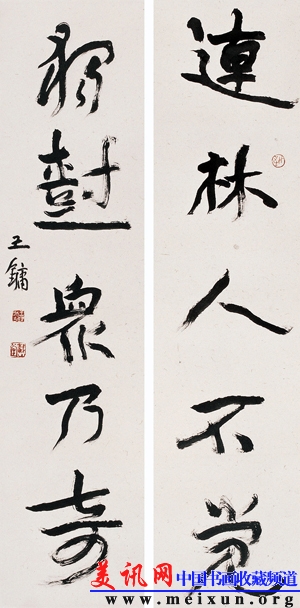 連林人不覺
獨樹眾乃奇
王鏞
美讯网 中国书画收藏频道
www.meixun.org